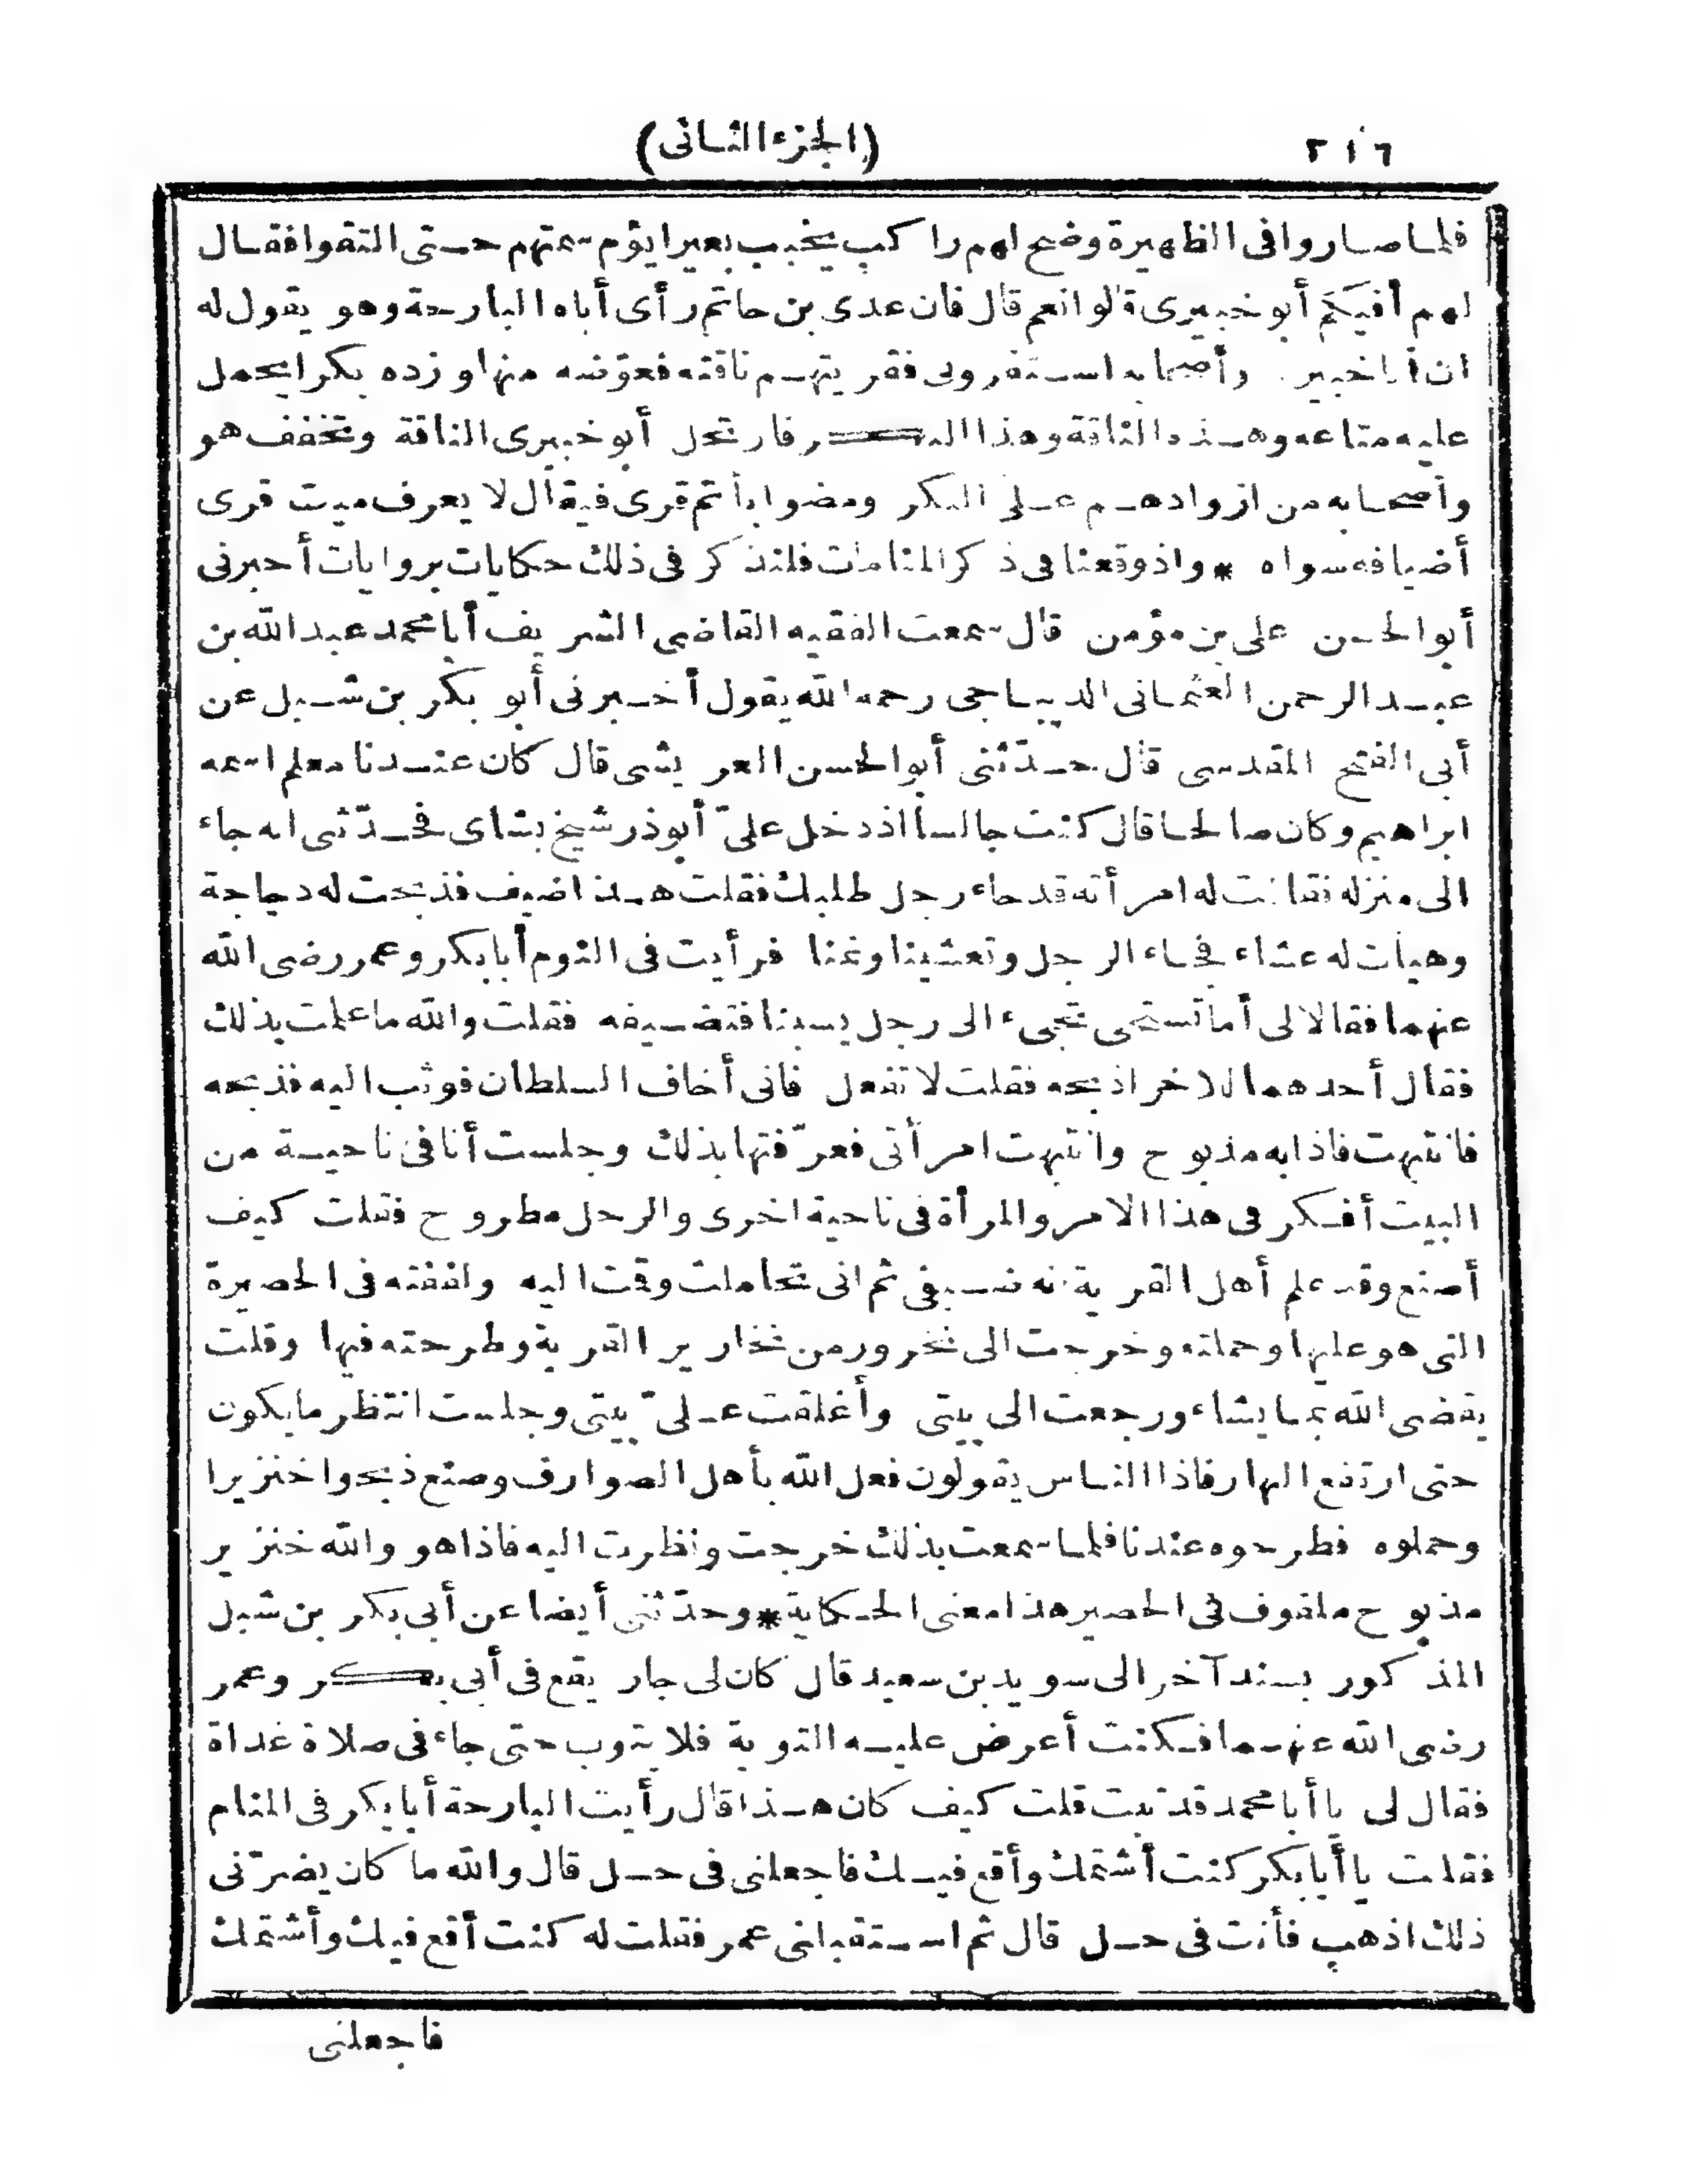 ٢١٦ (الجزء الثانى)
فلما صاروا فى الظهيرة وضح لهم راكب يخبب بعيرا يؤم سمتهم حتى التقوا فقال
لهم أفيكم أبو خبيرى قالوا نعم قال فان عدى بن حاتم رأى أباه البارحة وهو يقول له
ان أبا خبيرى وأصحابه استقرونى فقريتهم ناقته فعوّضه منها وزده بكرا يحمل
عليه متاعه وهذه الناقة وهذا البكر فارتحل أبو خبيرى الناقة وتخفف هو
وأصحابه من ازوادهم على البكر ومضوا بأتم قرى فيقال لا يعرف ميت قرى
أضيافه سواه * واذ وقعنا فى ذكر المنامات فلنذكر فى ذلك حكايات بروايات أخبرنى
أبو الحسن على بن مؤمن قال سمعت الفقيه القاضى الشريف أبا محمد عبد الله بن
عبد الرحمن العثمانى الديباجى رحمه الله يقول أخبرنى أبو بكر بن شبل عن
أبى الفتح المقدسى قال حدّثنى أبو الحسن العريشى قال كان عندنا معلم اسمه
ابراهيم وكان صالحا قال كنت جالسا اذ دخل علىّ أبو ذر شيخ بشاى فحدّثنى انه جاء
الى منزله فقالت له امرأته قد جاء رجل طلبك فقلت هذا ضيف فذبحت له دجاجة
وهيأت له عشاء فجاء الرجل وتعشينا ونمنا فرأيت فى النوم أبا بكر وعمر رضى الله
عنهما فقالا لى أما تستحى تجىء الى رجل يسبنا فتضيفه فقلت والله ما علمت بذلك
فقال أحدهما للآخر اذبحه فقلت لا تفعل فانى أخاف السلطان فوثب اليه فذبحه
فانتبهت فاذا به مذبوح وانتبهت امرأتى فعرّفتها بذلك وجلست أنا فى ناحية من
البيت أفكر فى هذا الامر والمرأة فى ناحية اخرى والرجل مطروح فقلت كيف
أصنع وقد علم أهل القرية انه ضيفى ثم انى تحاملت وقمت اليه ولففته فى الحصيرة
التى هو عليها وحملته وخرجت الى نخرور من نخارير القرية وطرحته فيها وقلت
يقضى الله بما يشاء ورجعت الى بيتى وأغلقت علىّ بيتى وجلست انتظر ما يكون
حتى ارتفع النهار فاذا الناس يقولون فعل الله بأهل الصوارف وصنع ذبحوا خنزيرا
وحملوه فطرحوه عندنا فلما سمعت بذلك خرجت ونظرت اليه فاذا هو والله خنزير
مذبوح ملفوف فى الحصير هذا معنى الحكاية * وحدّثنى أيضا عن أبى بكر بن شبل
المذكور بسند آخر الى سويد بن سعيد قال كان لى جار يقع فى أبى بكر وعمر
رضى الله عنهما فكنت أعرض عليه التوبة فلا يتوب حتى جاء فى صلاة غداة
فقال لى يا أبا محمد قد تبت قلت كيف كان هذا قال رأيت البارحة أبا بكر فى المنام
فقلت يا أبا بكر كنت أشتمك وأقع فيك فاجعلنى فى حل قال والله ما كان يضرّنى
ذلك اذهب فأنت فى حل قال ثم استقبلنى عمر فقلت له كنت أقع فيك وأشتمك
فاجعلنى